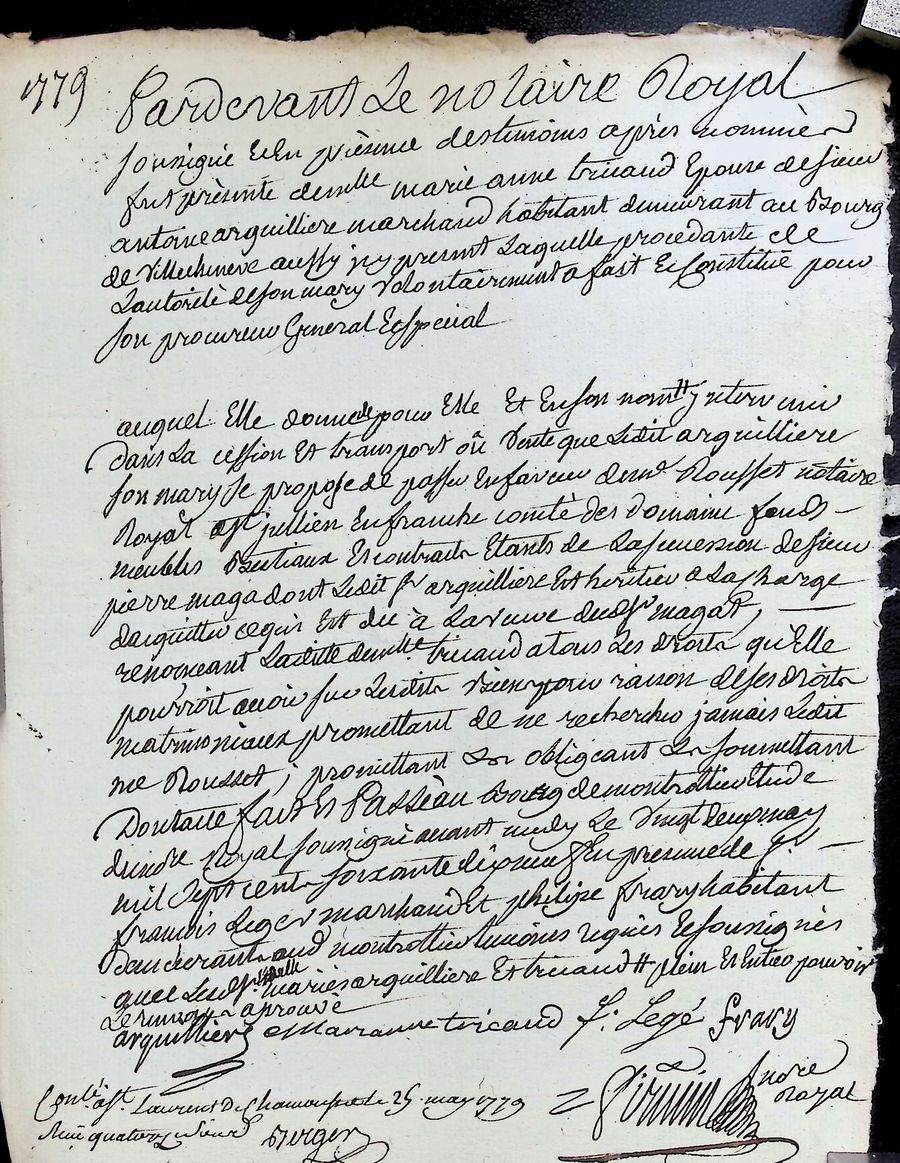 1779
Pardevant Le notaire Royal
soussigné et En présence des temoins après nommés
fut présente demlle marie anne tricaud Epouse de sieur
antoine arguilliere marchand habitant demeurant au Bourg
de Villecheneve aussy jcy present Laquelle procedante de
Lautorité de son mary volontairement a fait et Constitué pour
son procureur General Et special
auquel Elle donne pour Elle Et En son nom # jntervenir
dans La cession Et transport où Vente que Ledit arguilliere
son mary se propose de passer En faveur de me Rousset notaire
Royal a st jullien En franche comté des domaine fonds
meubles Bestiaux Et contrats Etants de La succession de sieur
pierre maga dont Ledit sr arguilliere Est heritier a La charge
dacquitter ce qui Est du à La veuve dudt sr magat,
renonceant Ladite demlle tricaud a tous Les droits qu'Elle
pourroit avoir sur Lesdits Biens pour raison de ses droits
matrimoniaux promettant de ne rechercher jamais Ledit
me Rousset, promettant &a obligeant &a soumettant
Dont acte fait Et Passé au Bourg de montrottier Etude
du nore Royal soussigné avant midy Le Vingt deux may
mil sept cents soixante dix neuf En presence de sr
francois Leger marchand Et philipe frary habitant
demeurants aud montrottier temoins requis Et soussignés
avec Lesd. mariés arguilliere Et tricaud # plein Et Entier pouvoir
Le renvoy aprouvé
arguilliere Marianne tricaud f. Legé frary
Conlé a st. Laurent De Chamousset le 25 may 1779
Reçu quatorze sous
Berger
nore
Royal